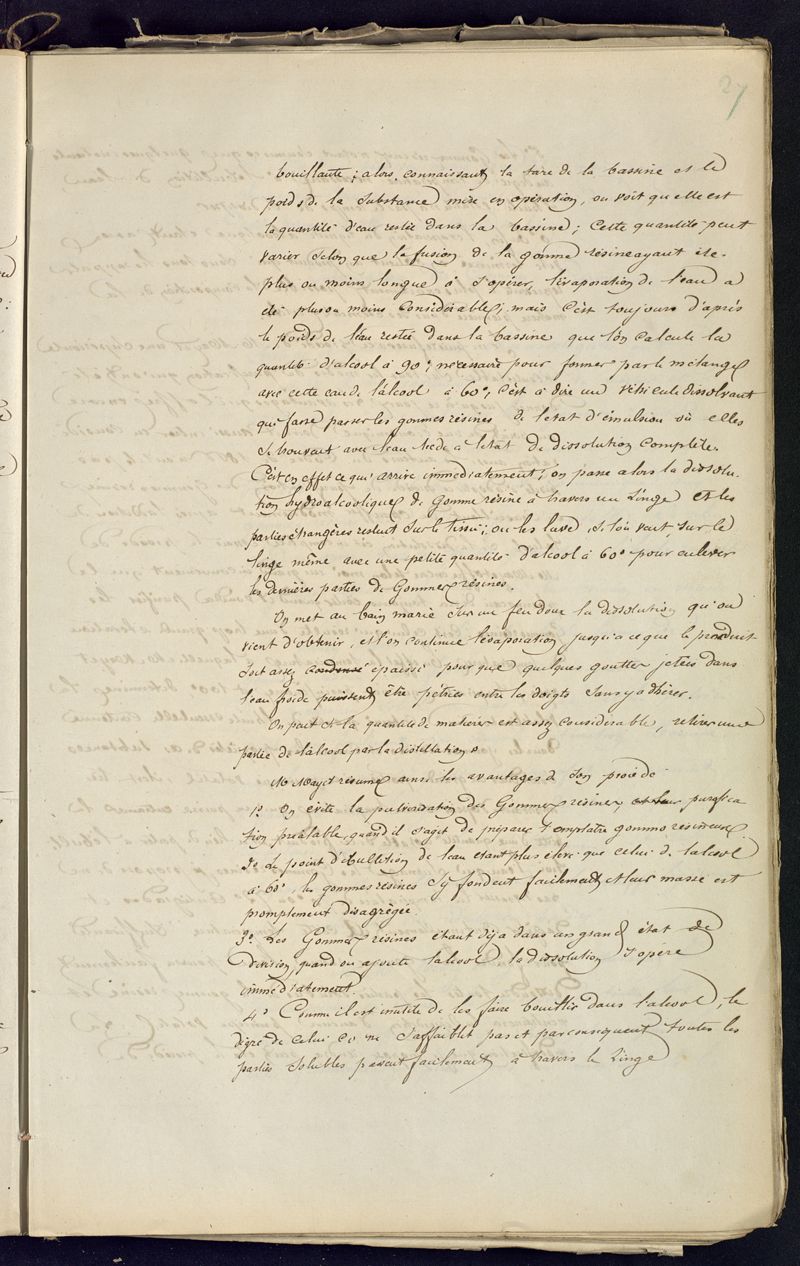 27
bouillante; alors, connaissant la tare de la bassine et le
poids de la substance mise en opération, on voit quelle est
la quantité d'eau restée dans la bassine; Cette quantité peut
varier selon que la fusion de la gomme résine ayant été
plus ou moins longue à s'opérer, l'évaporation de l'eau a
été plus ou moins considérable; mais c'est toujours d'après
le poids de l'eau restée dans la bassine que l'on calcule la
quantité d'alcool à 90°, nécessaire pour former par le mélange
avec cette eau de l'alcool à 60°, c'est à dire un véhicule dissolvant
qui fasse passer les gommes résines de l'état d'émulsion où elles
se trouvent avec l'eau tiede à l'état de dissolution complète.
C'est en effet ce qui arrive immédiatement; on passe alors la dissolu-
tion hydroalcoolique de Gomme résine à travers un Linge et les
parties étrangères restent sur le tissu; on les lave, si l'on veut, sur le
linge même avec une petite quantité d'alcool à 60° pour enlever
les dernières parties de Gommes résines.
On met au bain marie sur un feu doux la dissolution qu'on
vient d'obtenir, et l'on continue l'évaporation jusqu'à ce que le produit
soit assez condensé épaissi pour que quelques gouttes jetées dans
l'eau froide puissent être pétries entre les doigts sans y adhérer.
On peut si la quantité de matières est assez considérable, retirer une
partie de l'alcool par la distillation.
M. Mayet résume ainsi les avantages de son procédé
1° On évite la pulvérisation des Gommes résines, et leur purifica
tion préalable, quand il s'agit de préparer l'emplâtre gommo résineux.
2° Le point d'ébullition de l'eau étant plus élevé que celui de l'alcool
à 60°, les gommes résines s'y fondent facilement et leur masse est
promptement disagrégée.
3° Les Gommes résines étant déja dans un grand état de
division, quand on ajoute l'alcool, la dissolution s'opère
immédiatement.
4° Comme il est inutile de les faire bouillir dans l'alcool, le
dégré de celui ci ne s'affaiblit pas et par conséquent toutes les
parties solubles passent facilement à travers le Linge